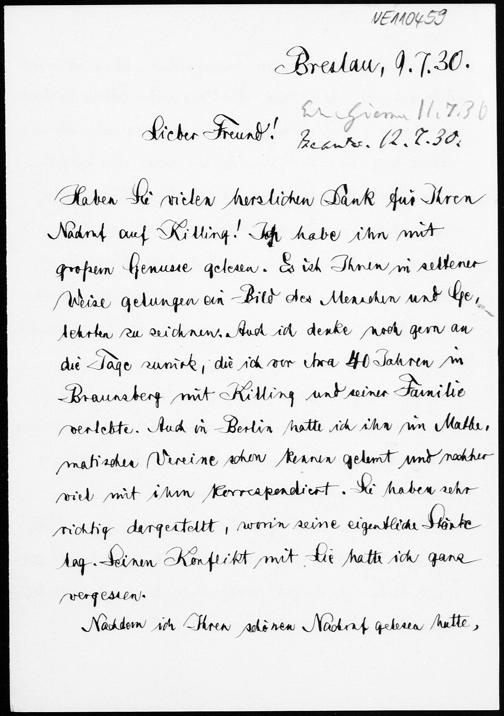 NE110459
Breslau, 9.7.30.
11.7.30
Lieber Freund!
12.7.30.
Haben Sie vielen herzlichen Dank für Ihren
Nachruf auf Killing! Ich habe ihn mit
großem Genusse gelesen. Es ist Ihnen in seltener
Weise gelungen ein Bild des Menschen und Ge-
lehrten zu zeichnen. Auch ich denke noch gern an
die Tage zurück, die ich vor etwa 40 Jahren in
Braunsberg mit Killing und seiner Familie
verlebte. Auch in Berlin hatte ich ihn im Mathe-
matischen Vereine schon kennen gelernt und nachher
viel mit ihm korrespondiert. Sie haben sehr
richtig dargestellt, worin seine eigentliche Stärke
lag. Seinen Konflikt mit Lie hatte ich ganz
vergessen.
Nachdem ich Ihren schönen Nachruf gelesen hatte,